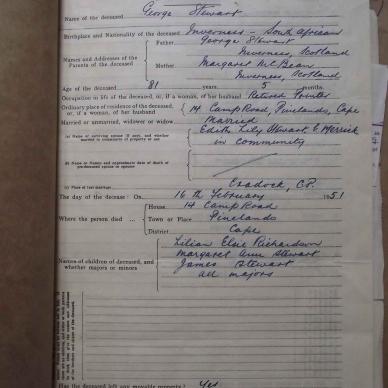 Name of the deceased George Stewart
Birthplace and Nationality of the deceased Inverness - South African
Names and Addresses of the Parents of the deceased
Father George Stewart
Inverness, Scotland
Mother Margaret McBean
Inverness, Scotland
Age of the deceased 81 years 5 months.
Occupation in life of the deceased, or, if a woman, of her husband Retired Printer
Ordinary place of residence of the deceased, or, if a woman, of her husband 14 Camp Road, Pinelands, Cape
Married or unmarried, widower or widow Married
(a) Name of surviving spouse (if any), and whether married in community of property or not Edith Lily Stewart b Merrick
in community
(b) Name or Names and approximate date of death of predeceased spouse or spouses
(c) Place of last marriage Cradock, C.P.
The day of the decease: On 16 th February 1951
Where the person died
House 14 Camp Road
Town or Place Pinelands
District Cape
Names of children of deceased, and whether majors or minors
Lilian Elsie Richardson
Margaret Ann Stewart
James Stewart
all majors
Has the deceased left any movable property? Yes